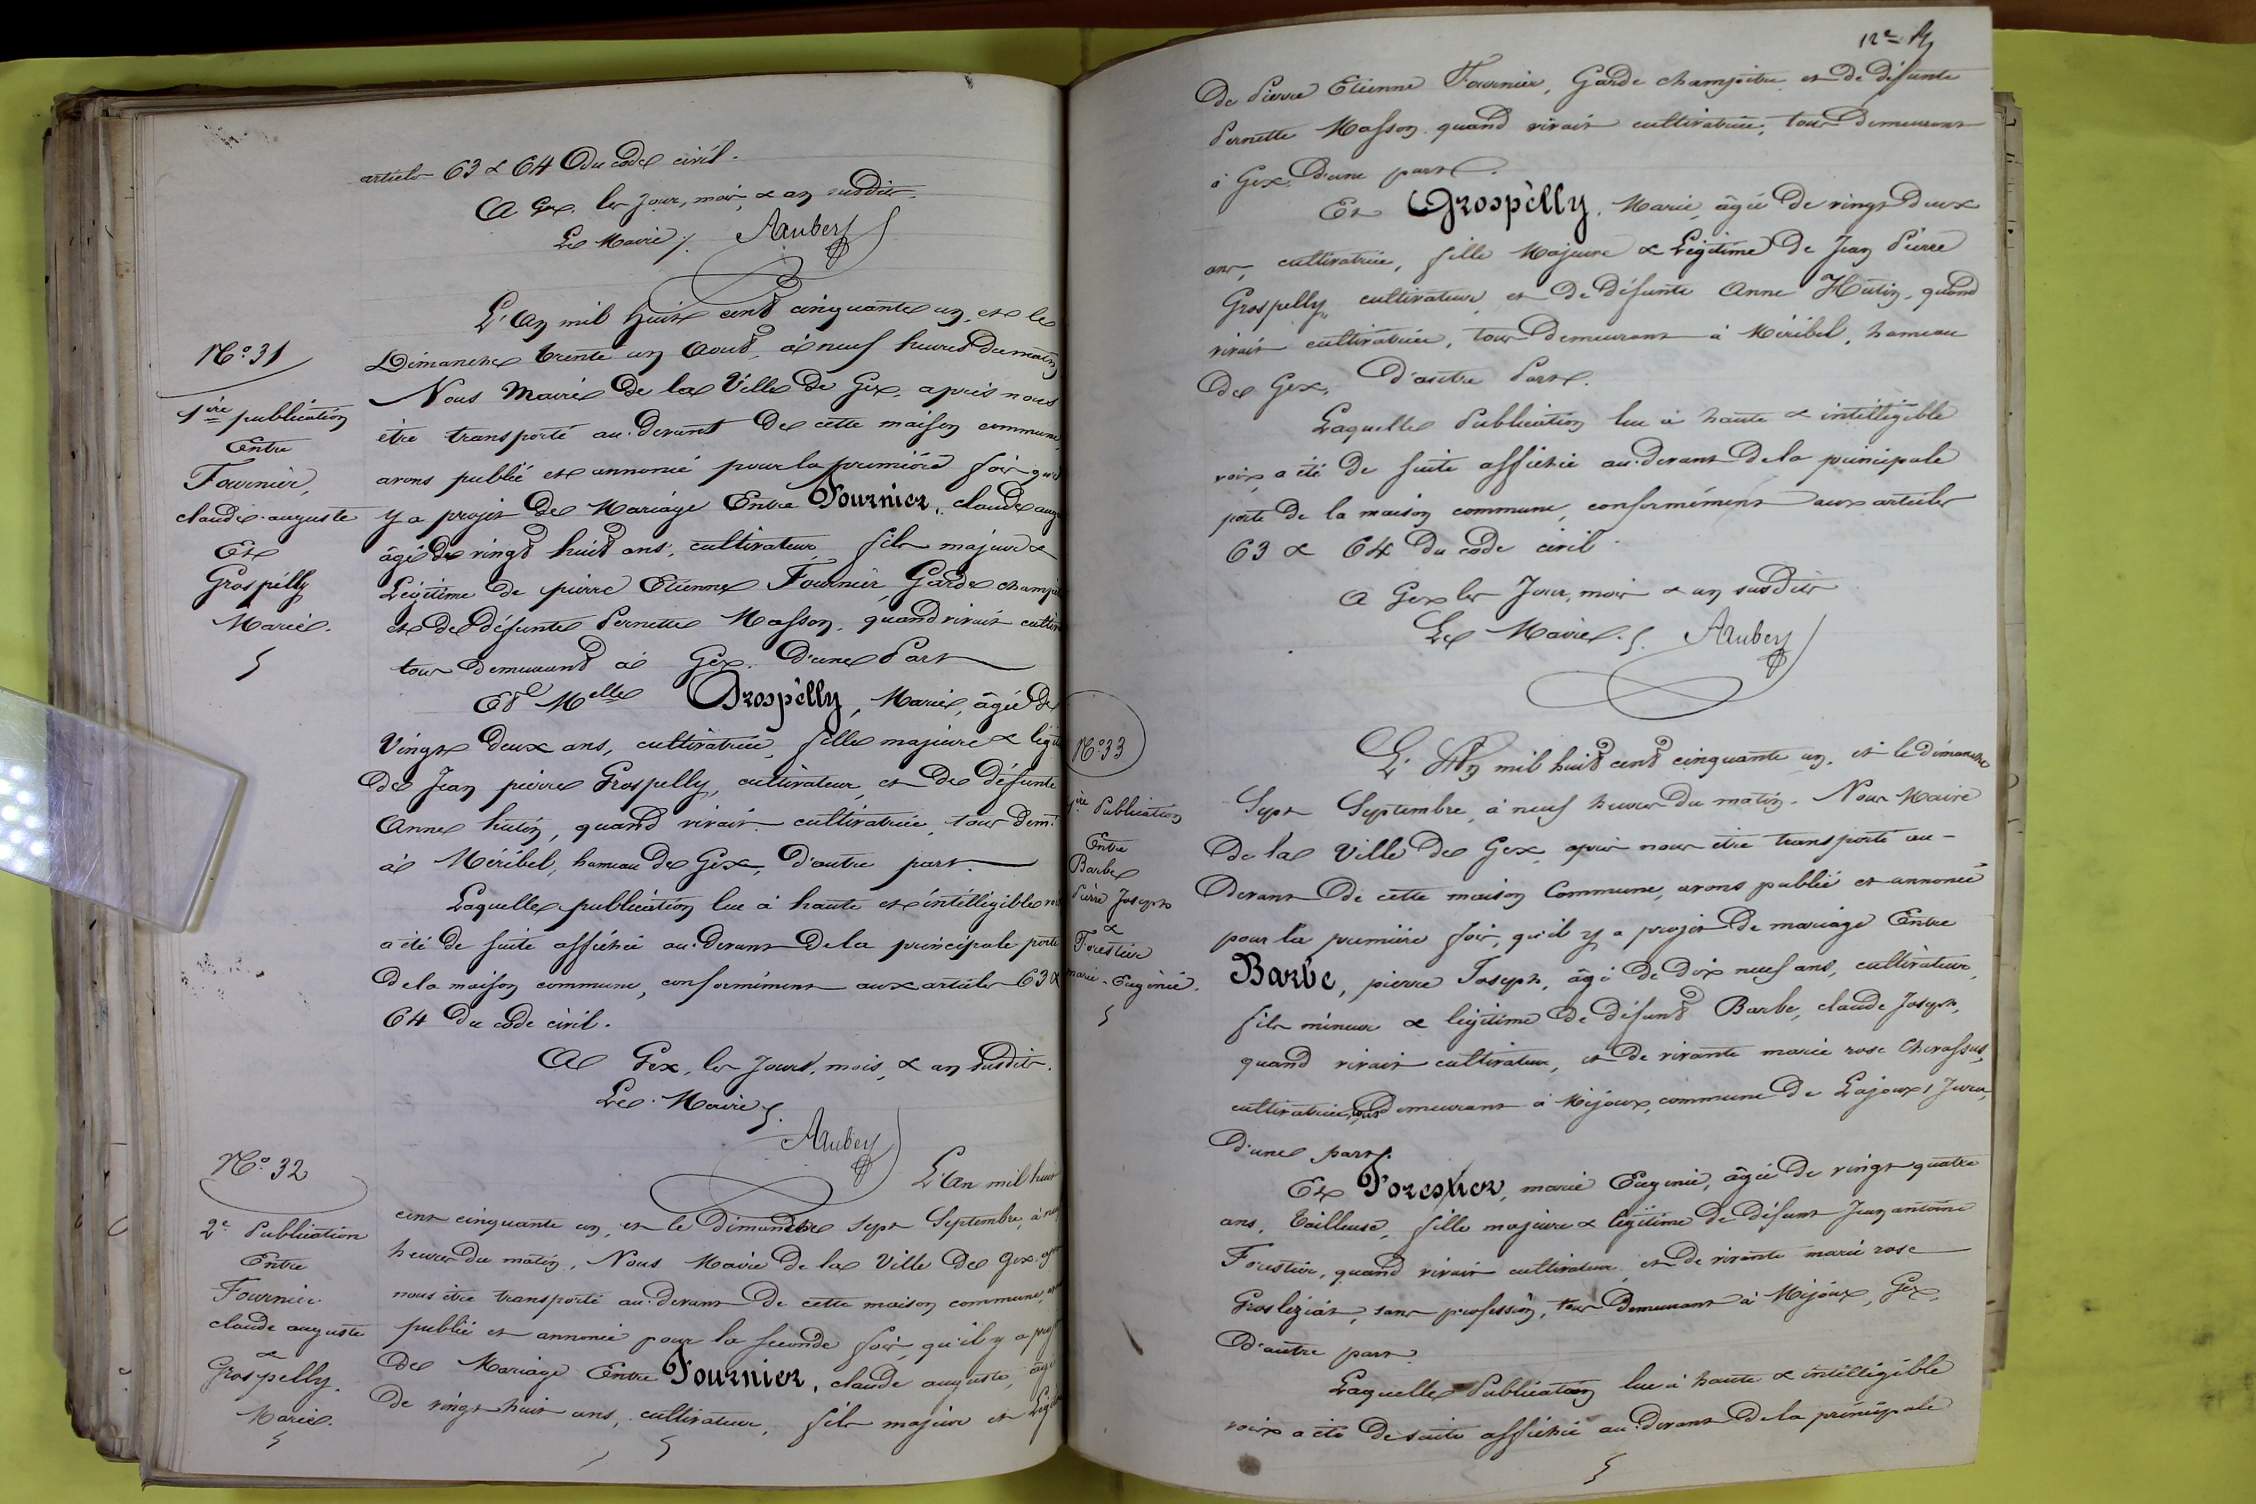 articles 63 & 64 du code civil.
A Gex. les jour, mois, & an susdits.
Le Maire,
AAubery
N.º 31
1ère publication
Entre
Fournier,
claude-auguste
Et
Grospèlly
Marie.
L'An mil huit cent cinquante un, et le
Dimanche trente un Aout, à neuf heures du matin
Nous Maire de la Ville de Gex, après nous
être transporté au-devant de cette maison commune,
avons publié et annoncé pour la première fois qu'il
y a projet de Mariage Entre Fournier, claude aug
âgé de vingt huit ans, cultivateur, fils majeur &
Légitime de pierre Etienne Fournier, Garde champê
et de défunte Pernette Masson, quand vivait cultiv
tous demeurant à Gex. d'une Part
Et Melle Grospèlly, Marie, âgée de
Vingt deux ans, cultivatrice, fille majeure & légit
de Jean pierre Grospelly, cultivateur, et de défunte
Anne hutin, quand vivait cultivatrice, tous dem.t
à Méribel, hameau de Gex, d'autre part.
Laquelle publication lue à haute et intélligible voi
a été de suite affichée au-devant de la principale porte
de la maison commune, conformément aux articles 63 &
64 du code civil.
A Gex, les jours, mois, & an susdits.
Le Maire,
AAubery
N.º 32
2e Publication
Entre
Fournier
claude auguste
&
Grospelly.
Marie.
L'An mil huit
cent cinquante un, et le dimanche sept Septembre, à neuf
heures du matin, Nous Maire de la Ville de Gex, après
nous être transporté au-devant de cette maison commune,
publié et annoncé pour la seconde fois, qu'il y a projet
de Mariage Entre Fournier, claude auguste, âgé
de vingt huit ans, cultivateur, fils majeur et Légit
12e
de Pierre Etienne Fournier, Garde champêtre et de défunte
Pernette Masson quand vivait cultivatrice, tous demeurant
à Gex, d'une part.
Et Grospèlly, Marie, âgée de vingt deux
ans, cultivatrice, fille Majeure & Légitime de Jean Pierre
Grospelly, cultivateur, et de défunte Anne Hutin, quand
vivait cultivatrice, tous demeurant à Méribel, hameau
de Gex, d'autre Part.
Laquelle Publication lue à haute & intélligible
voix a été de suite affichée au-devant de la principale
porte de la maison commune, conformément aux articles
63 & 64 du code civil.
A Gex les Jour, mois & an susdits
Le Maire.
AAubery
N.º 33
1ère Publication
Entre
Barbe
Pierre Joseph
&
Forestier
marie-Eugénie.
L'An mil huit cent cinquante un, et le dimanche
Sept Septembre, à neuf heures du matin. Nous Maire
de la Ville de Gex, après nous être transporté au-
devant de cette maison Commune, avons publié et annoncé
pour la première fois, qu'il y a projet de mariage Entre
Barbe, pierre Joseph, âgé de dix neuf ans, cultivateur,
fils mineur & légitime de défunt Barbe, claude Joseph,
quand vivait cultivateur, et de vivante marie rose Chevassus,
cultivatrice, tous demeurant à Mijoux, commune de Lajoux, Jura,
d'une part.
Et Forestier, marie Eugénie, âgée de vingt quatre
ans, tailleuse, fille majeure & légitime de défunt Jean antoine
Forestier, quand vivait cultivateur, et de vivante marie rose
Grosléziat, sans profession, tous demeurant à Mijoux, Gex,
d'autre part.
Laquelle Publication lue à haute & intélligible
voix a été de suite affichée au-devant de la principale